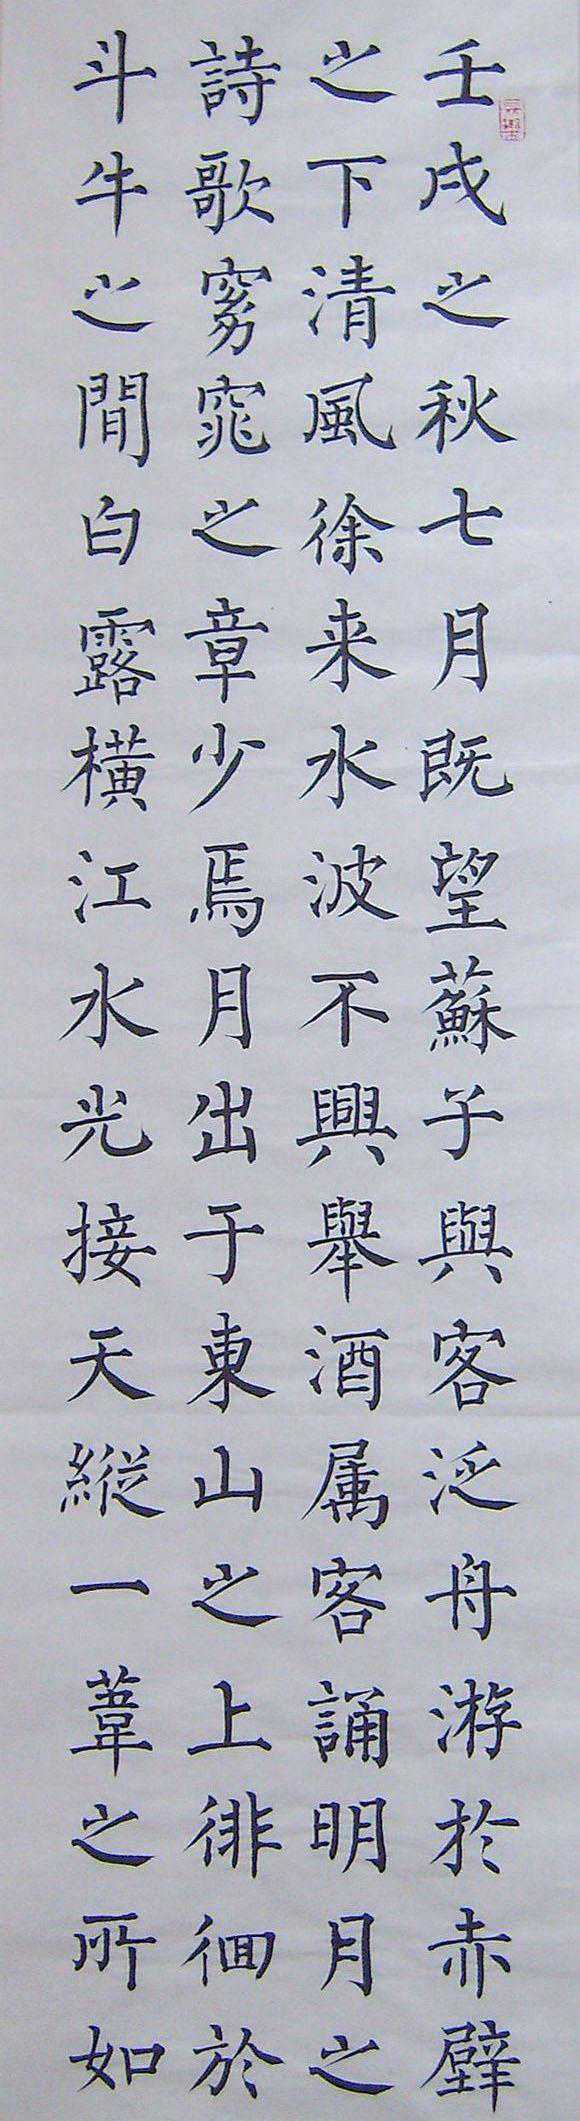 壬戌之秋七月既望蘇子與客泛舟游於赤壁
之下清風徐来水波不興舉酒属客誦明月之
詩歌窈窕之章少焉月出于東山之上徘徊於
斗牛之間白露橫江水光接天縦一葦之所如